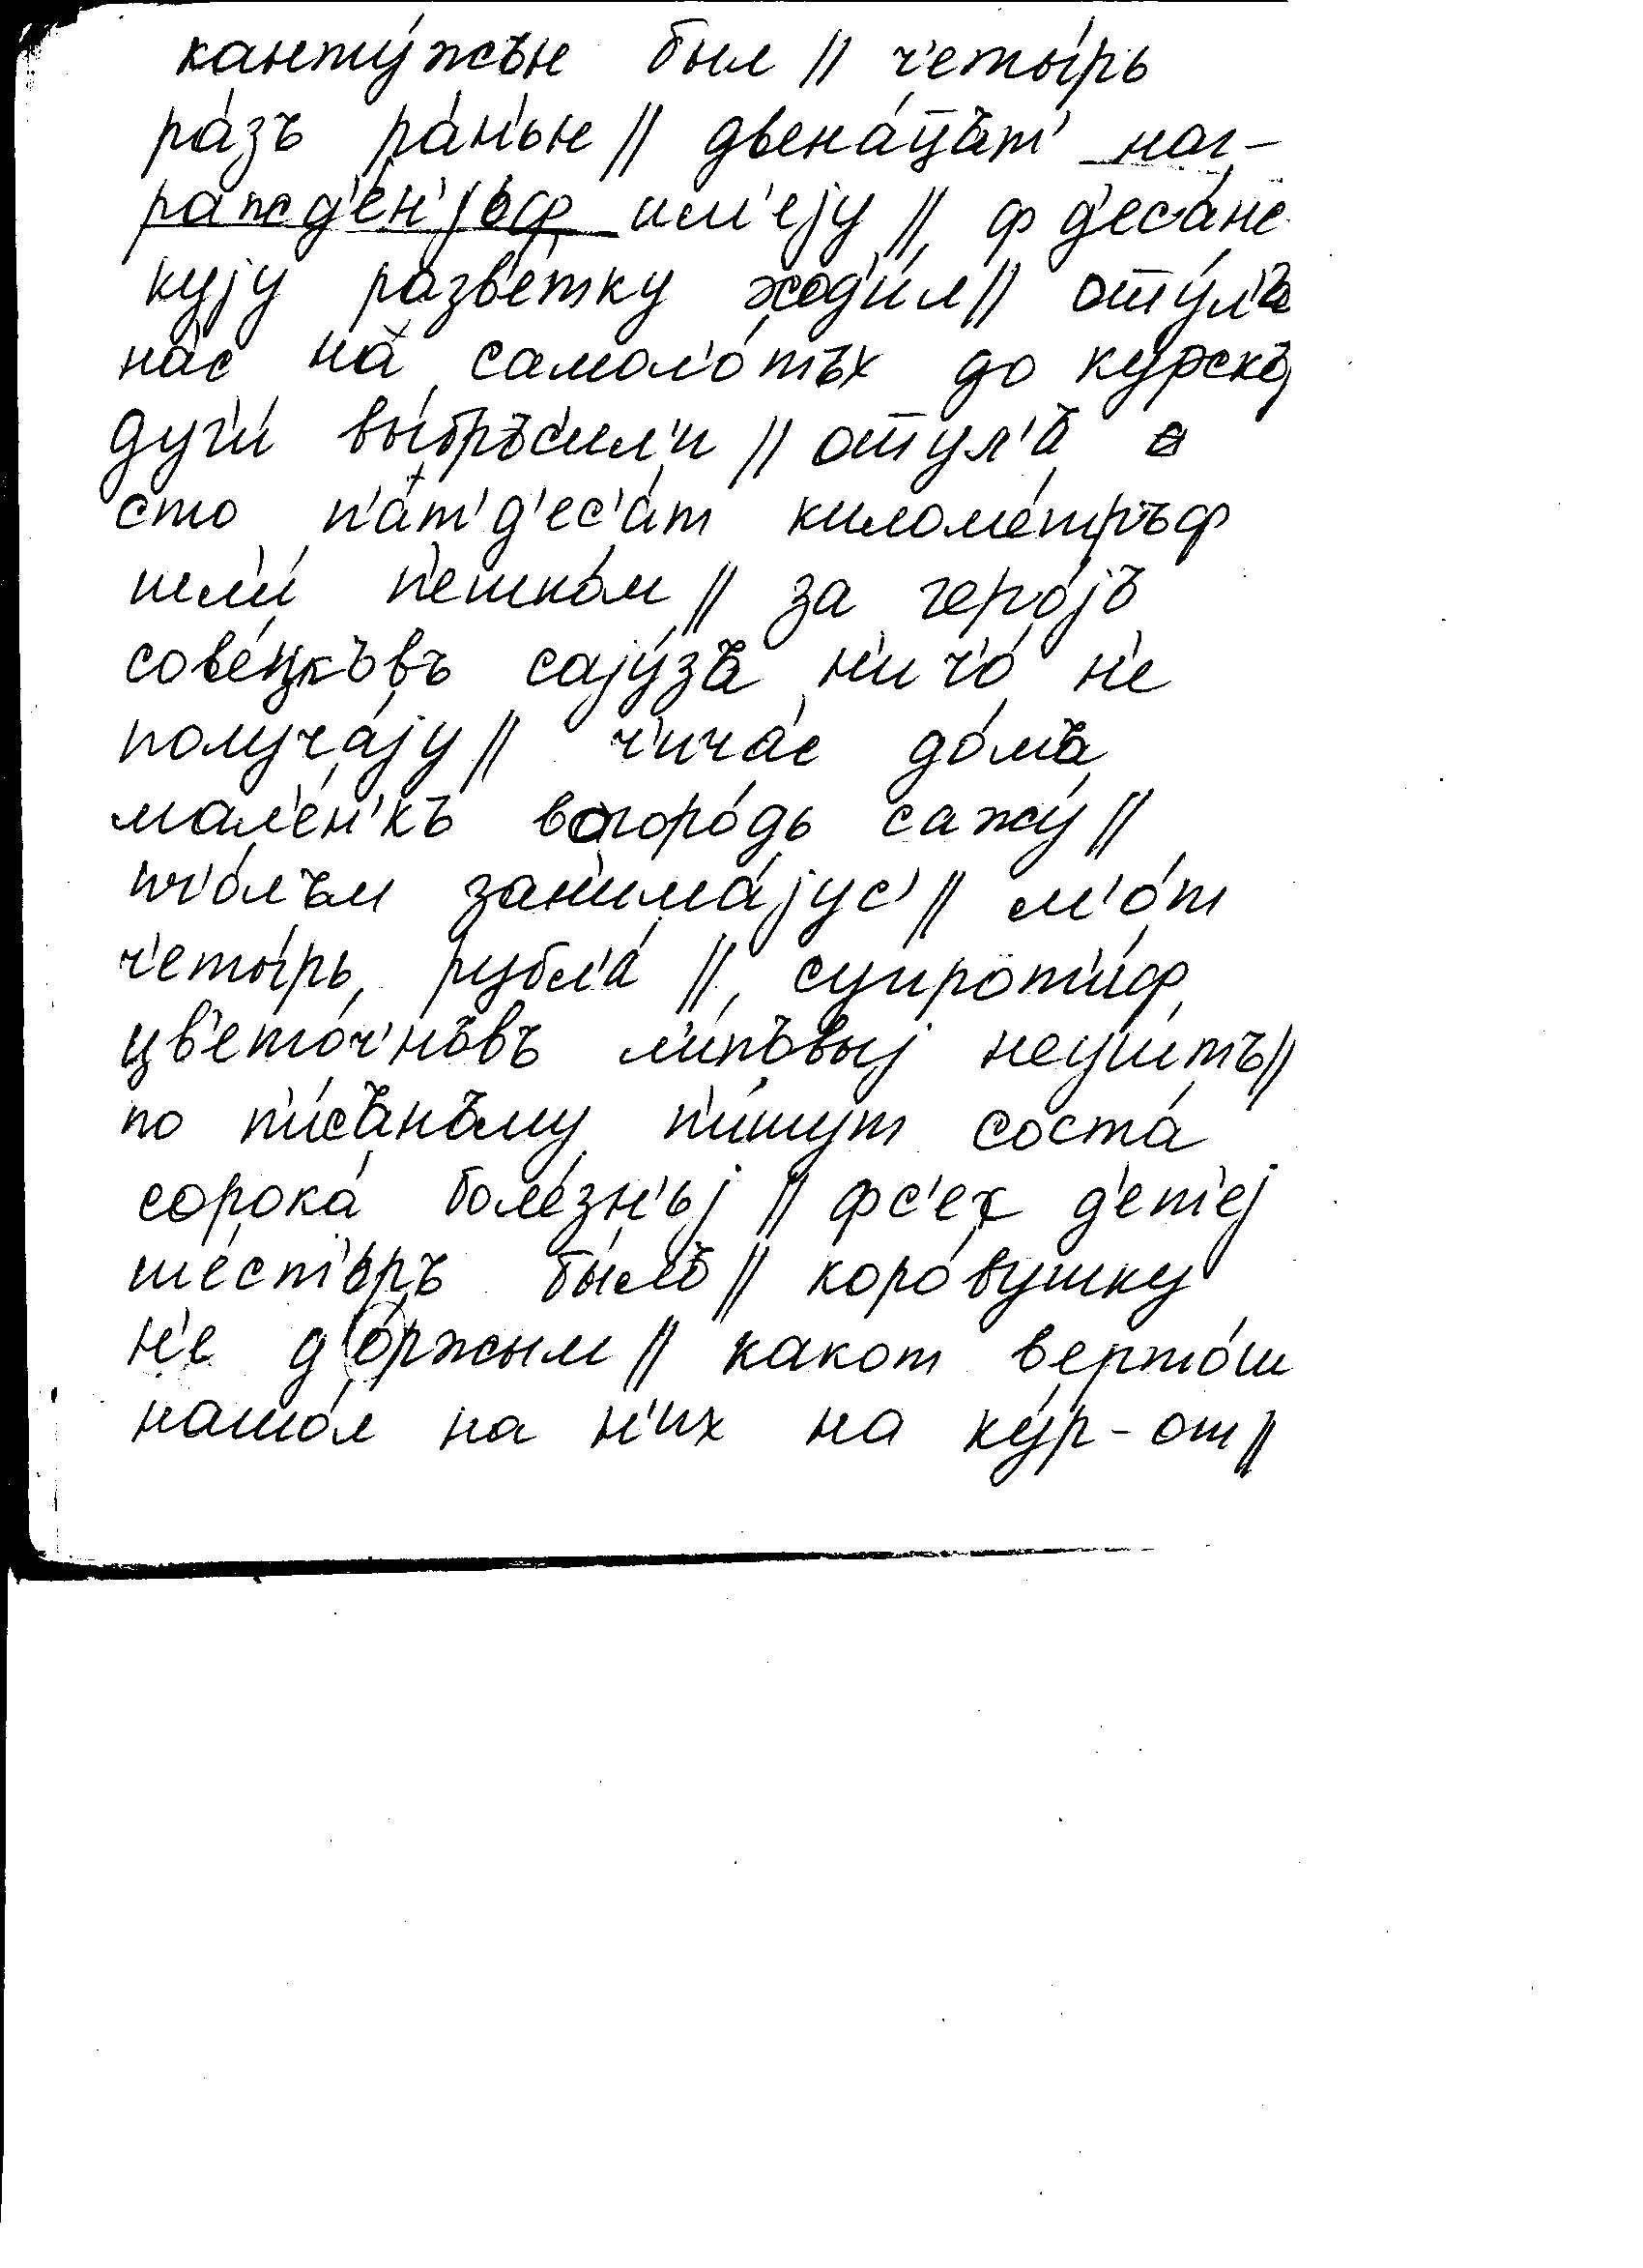 канту́жън был // ч'еты́рь
ра́зъ ра́н'ьн // двена́цът' наг-
ражд'е́н'jьф им'еjу // ф д'еса́нс
куjу разв'е́тку ход'и́л // отту́л'ъ
нас на самол'о́тъх до ку́рскъ
дуг'и́ вы́бръсил'и // оттул'ъ а
сто п'ат'д'ес'а́т киломе́тръф
шл'и́ п'ешко́м // за геро́jъ
сове́цкъвъ саjу́зъ н'ич'о́ н'е
получа́jу // ч'ича́с до́мъ
мал'е́н'къ вогоро́дь сажу́ //
пч'о́лъм зан'има́jус' // м'о́т
ч'еты́рь рубл'а́ // супрот'и́ф
цв'ето́ч'нъвъ л'и́пъвыj неуш́тъ //
по п'и́сънъму п'и́шут соста́
сорока́ боле́зн'ьj // фс'ех д'ет'еj
ше́ст'ьръ бы́лъ // коро́вушку
н'е д'о́ржым // какот верто́ш
нашо́л на н'их на ку́р-от //